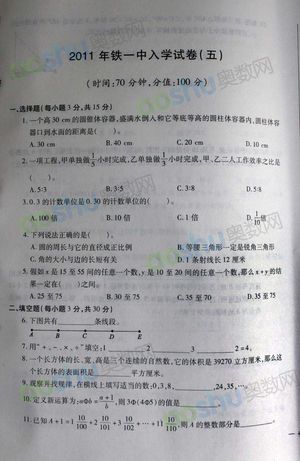 2011年铁一中入学试卷(五)
(时间:70分钟,分值:100分)
一、选择题(每小题3分,共15分)
1.一个高30cm的圆锥体容器,盛满水倒入和它底等高的圆柱体容器内,圆柱体容
器口到水面的距离是( )。
A.30cm B.40cm C.10cm D.20cm
2.一项工程,甲单独做1/2小时完成,乙单独做1/3小时完成,甲、乙二人工作效率之比是
( )。
A.5:3 B.3:5 C.3:8 D.5:8
3.0.3的计数单位是0.03的计数单位的( )。
A.100倍 B.10倍 C.1倍 D.1/10倍
4.下列说法正确的是( )。
A.圆的周长与它的直径成正比例 B.等腰三角形一定是锐角三角形
C.角的大小与边的长短有关 D.1条射线长12厘米
5.假如x是15至55间的任意一个数,y是10至20间的任意一个数,那么x+y的结
果一定在( )之间。
A.25至75 B.30至75 C.35至75 D.30至65
二、填空题(每小题3分,共30分)
6.下图共有 条线段。
A B C D E
7.用"+、-、×、÷"填空:1 2 3 2=4。
8.一个长方体的长、宽、高是三个连续的自然数,它的体积是39270立方厘米,那么这
个长方体的表面积是 平方厘米。
9.观察并找规律,在横线上填写适当的数:0,3,8, ,24,35,…。
10.定义新运算为:aΦb=(a+1)/b,则3Φ(4Φ5)的值是
11.已知A+1=1 10/100+2 10/101+3 10/102+…+11 10/110,则A的整数部分是
奥数网